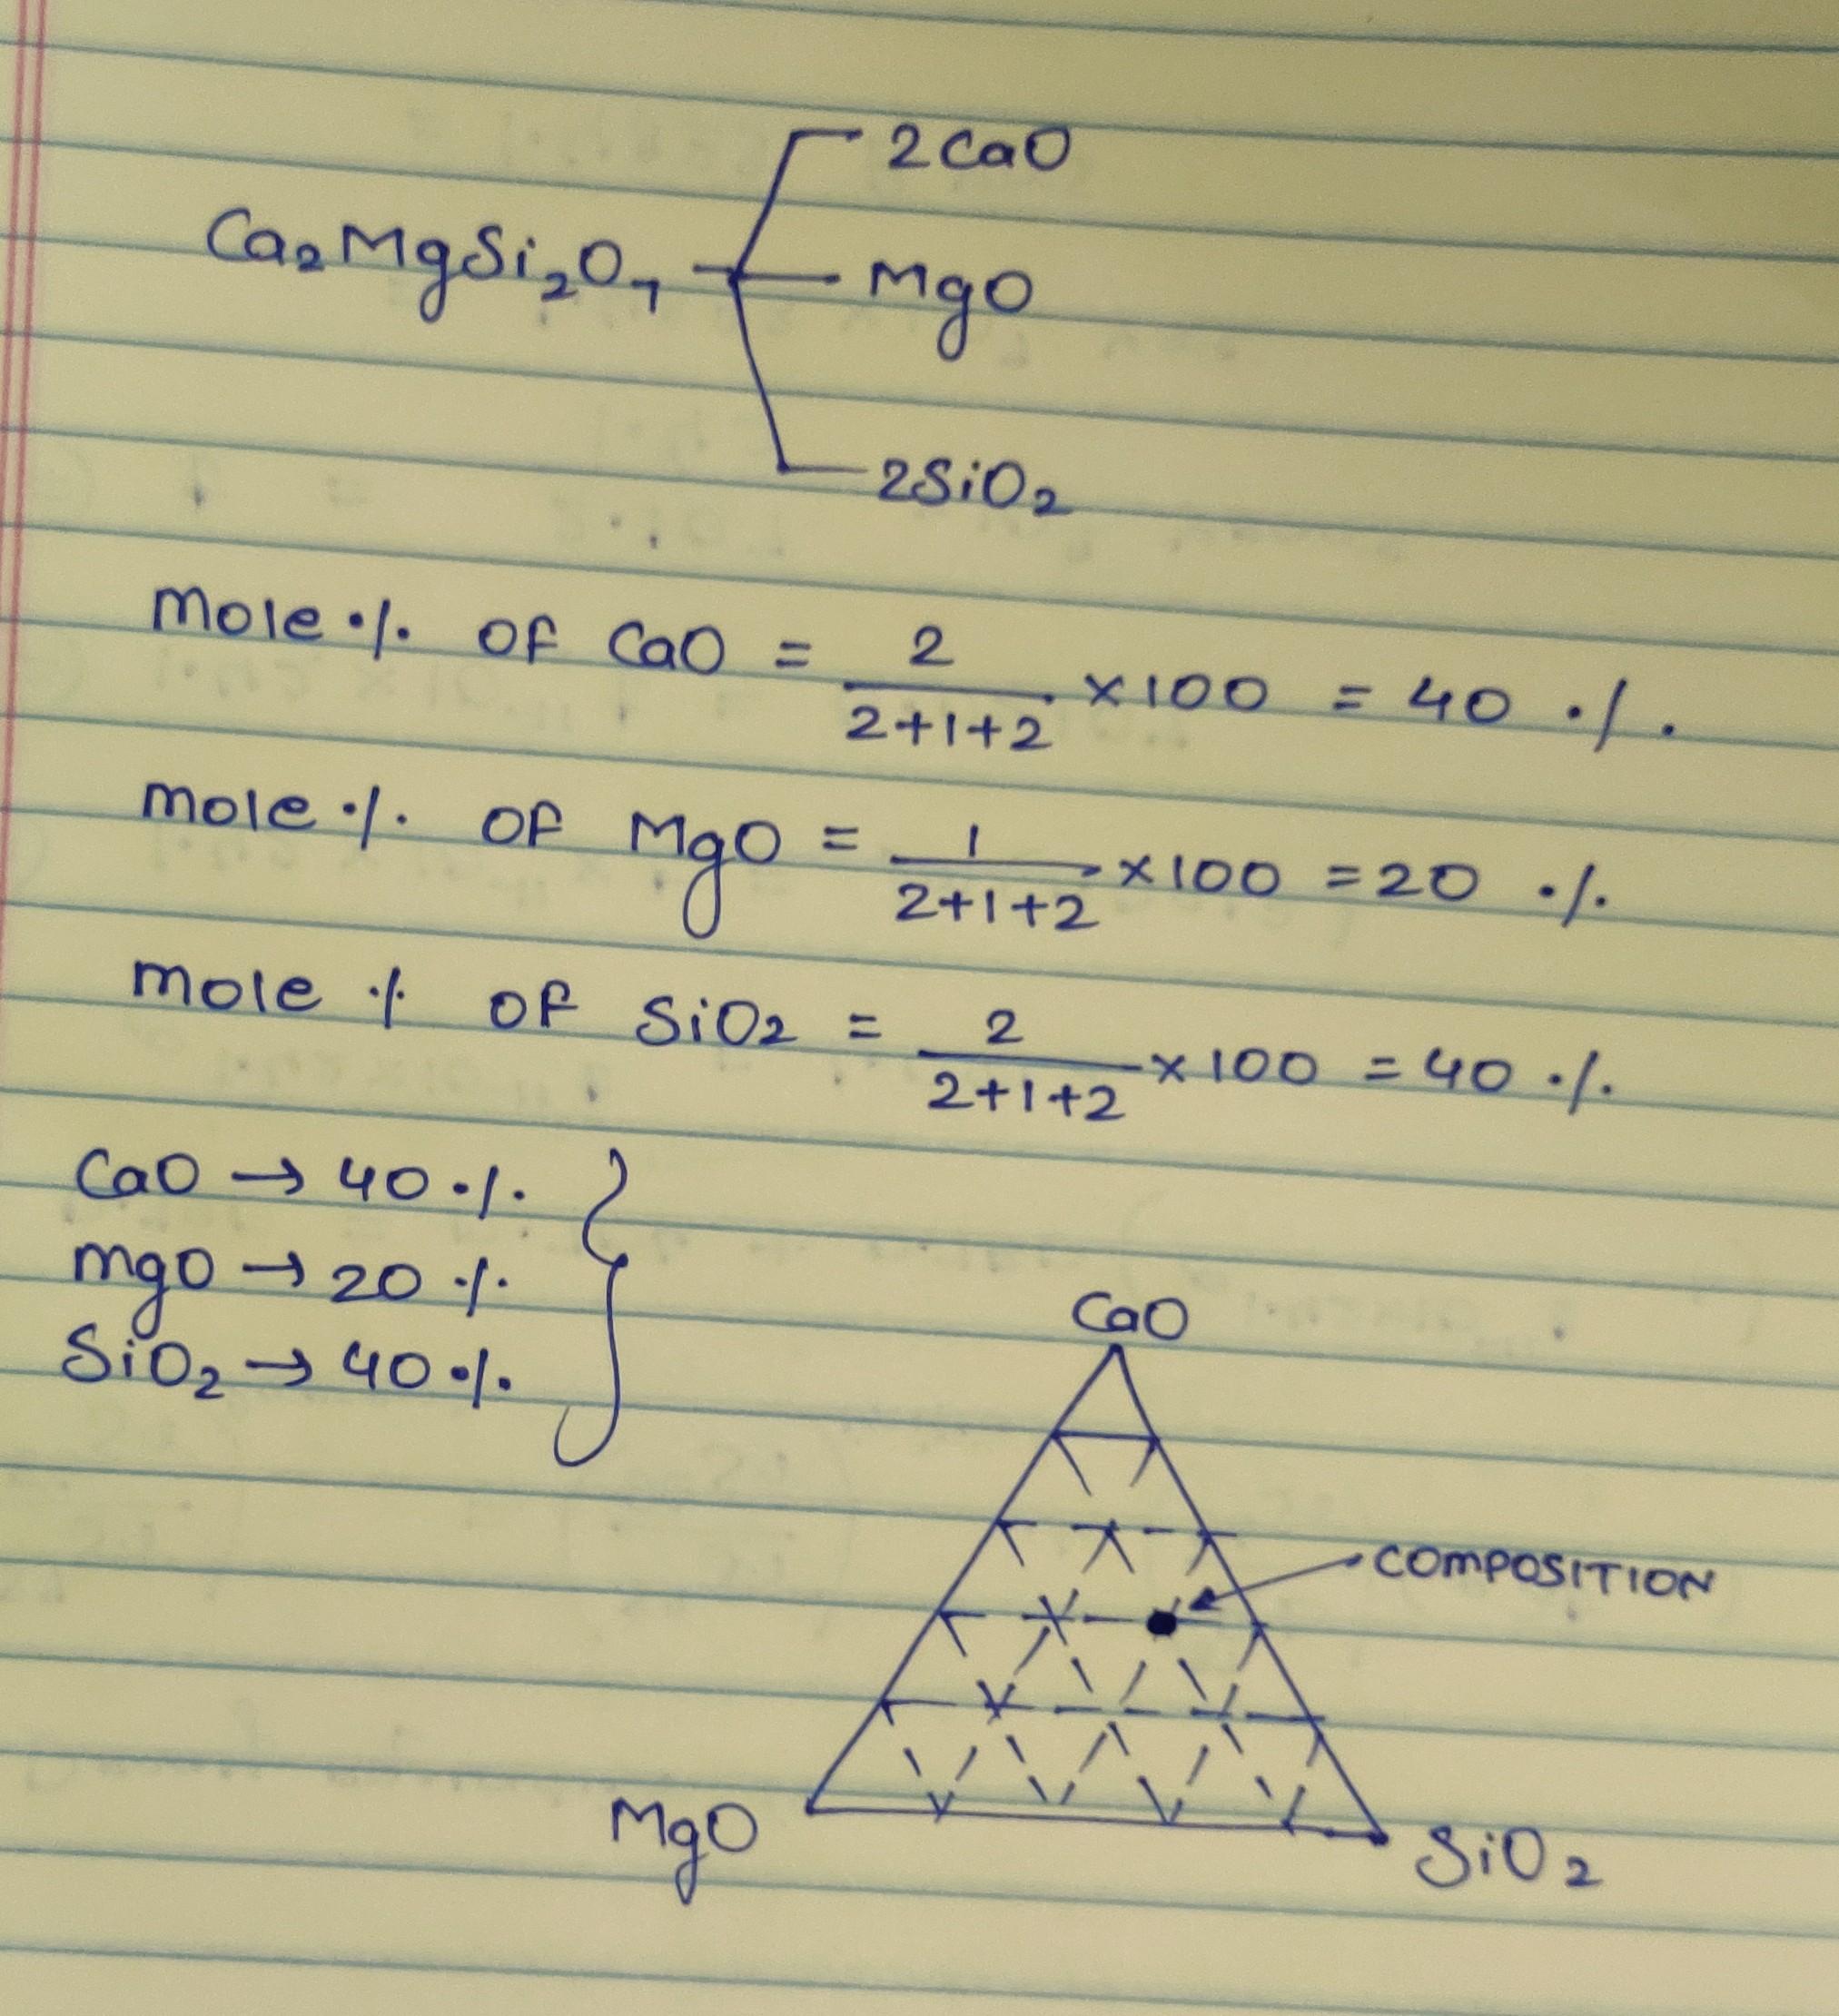 2CaO
Ca₂MgSi₂O₇
MgO
2SiO₂
Mole % of CaO = 2/(2+1+2) × 100 = 40 %.
Mole % of MgO = 1/(2+1+2) × 100 = 20 %.
Mole % of SiO₂ = 2/(2+1+2) × 100 = 40 %.
CaO → 40 %.
MgO → 20 %.
SiO₂ → 40 %.
CaO
COMPOSITION
MgO
SiO₂